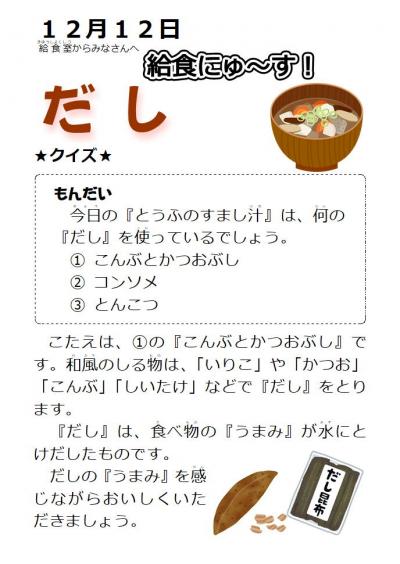 12月12日
給食室からみなさんへ
給食にゅ～す！
だし
★クイズ★
もんだい
今日の『とうふのすまし汁』は、何の
『だし』を使っているでしょう。
① こんぶとかつおぶし
② コンソメ
③ とんこつ
こたえは、①の『こんぶとかつおぶし』で
す。和風のしる物は、「いりこ」や「かつお」
「こんぶ」「しいたけ」などで『だし』をとり
ます。
『だし』は、食べ物の『うまみ』が水にと
けだしたものです。
だしの『うまみ』を感
じながらおいしくいた
だきましょう。
だし昆布